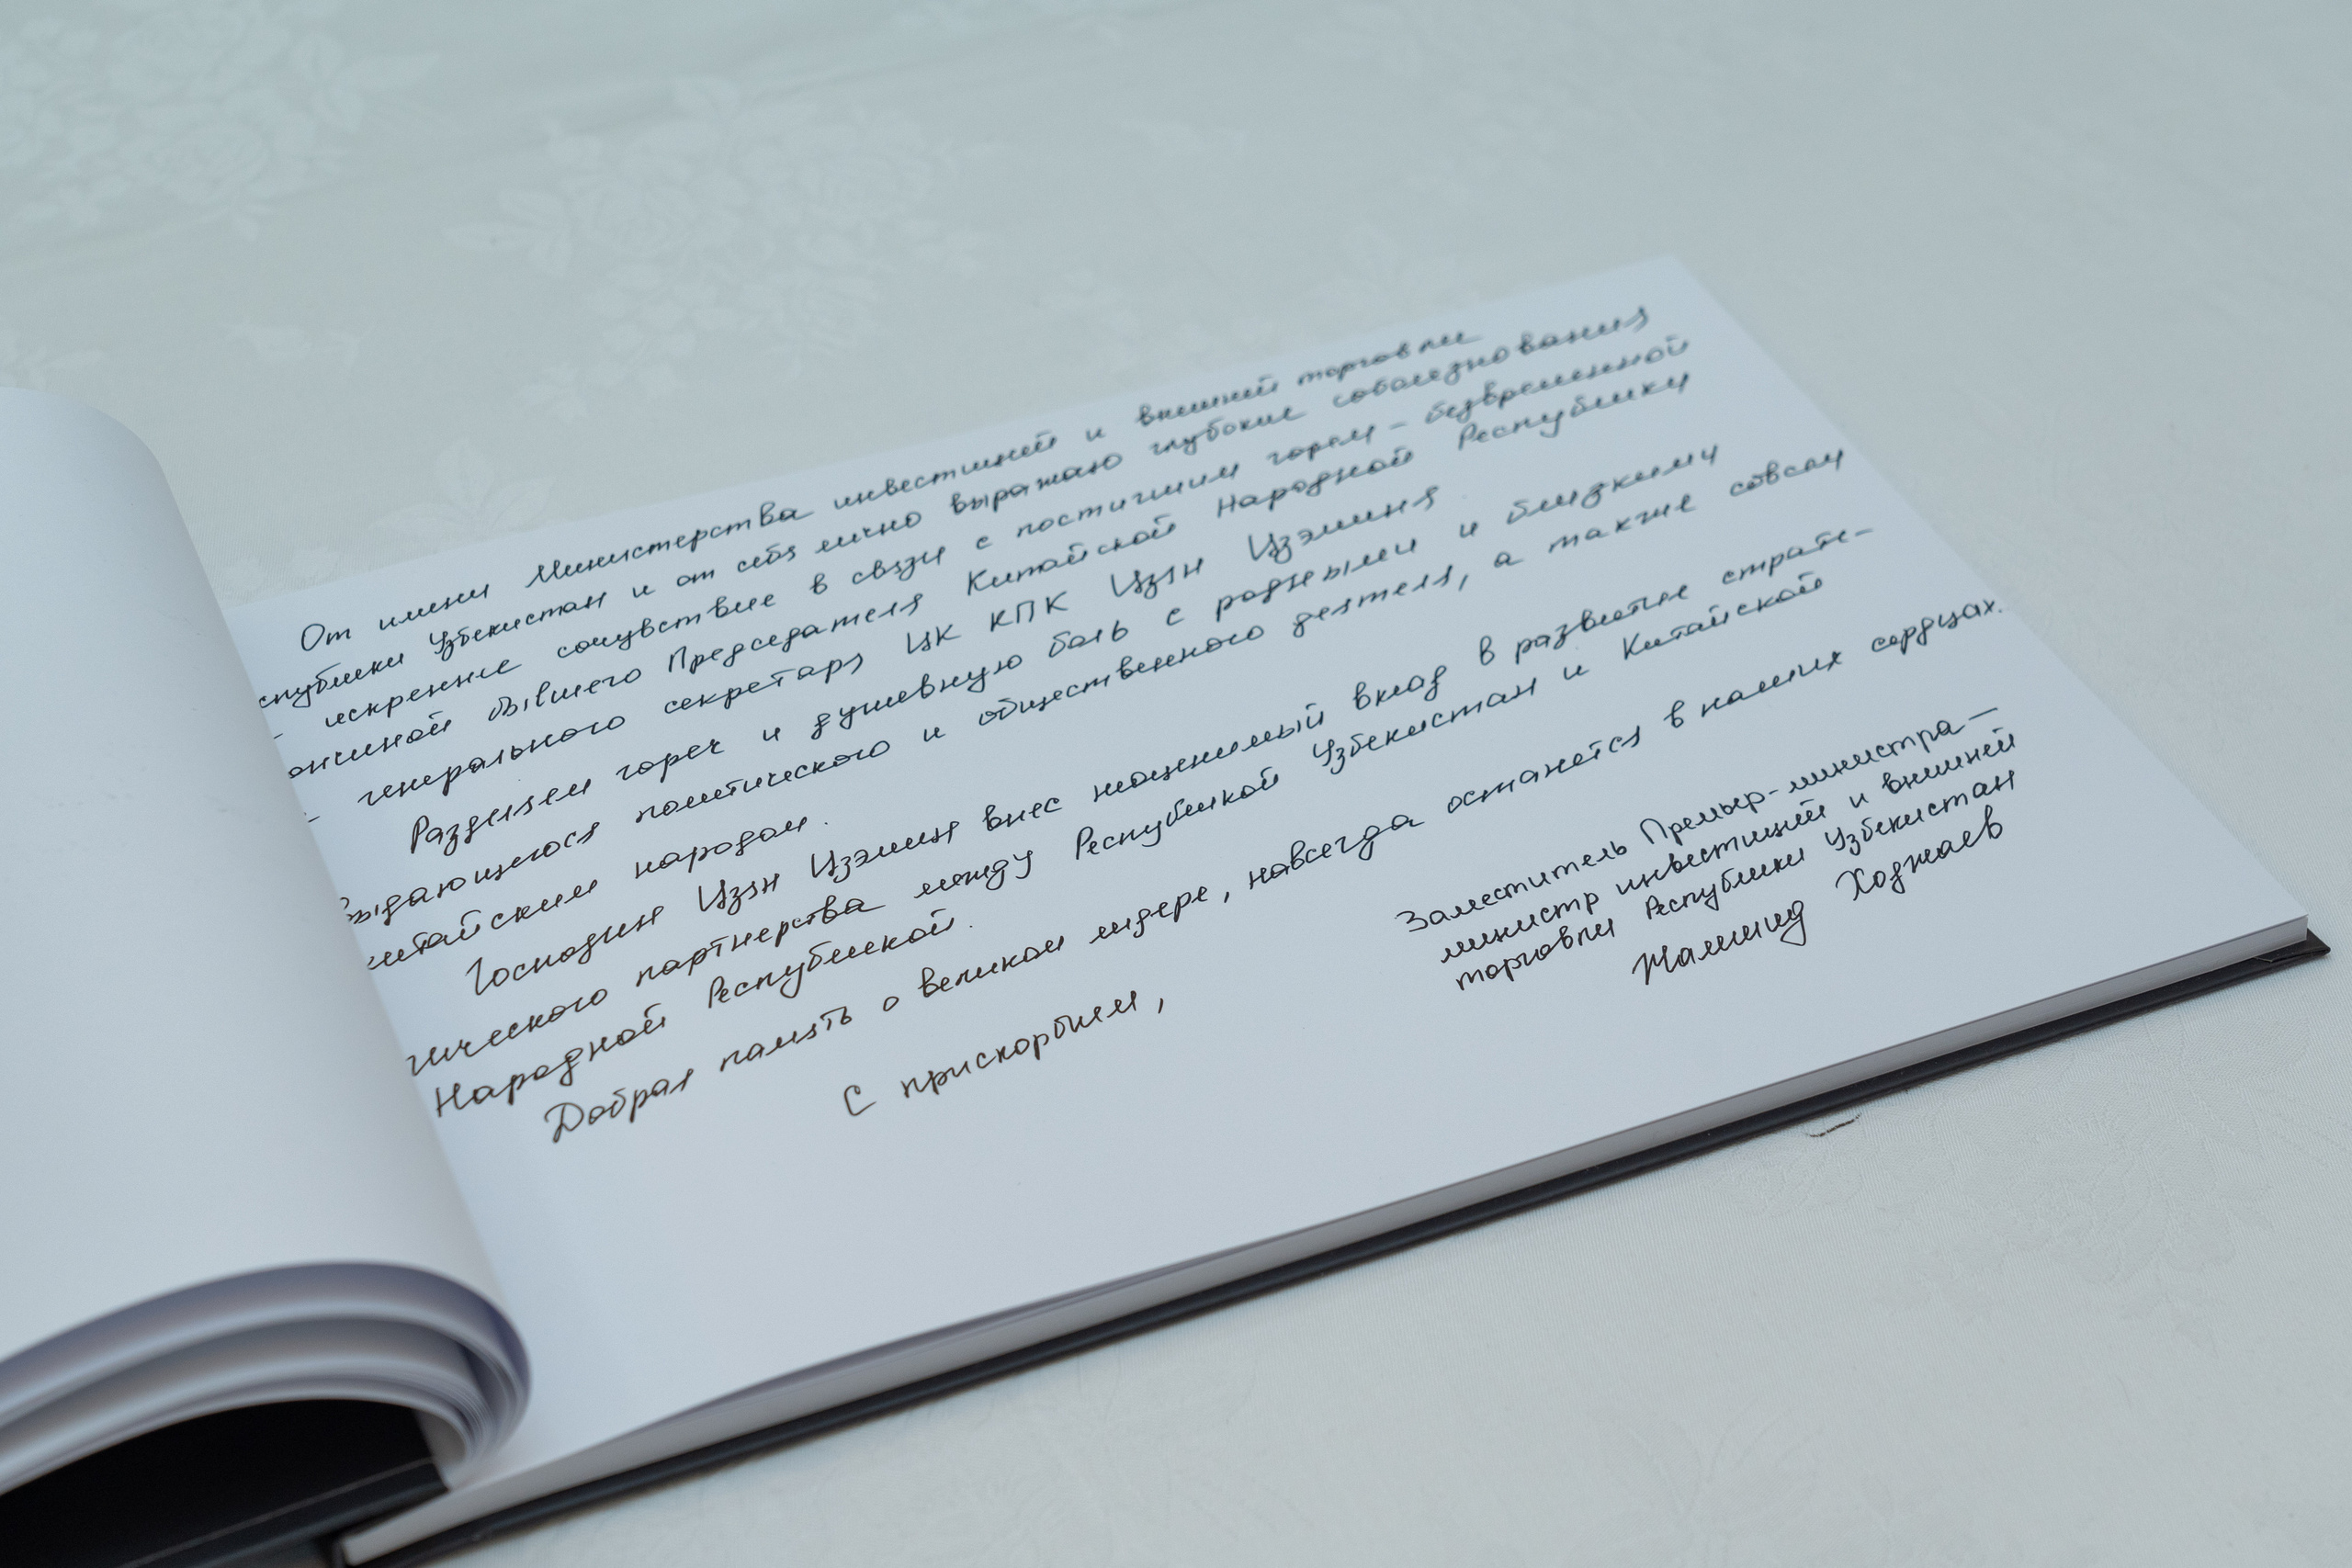 От имени Министерства инвестиций и внешней торговли
спублики Узбекистан и от себя лично выражаю глубокие соболезнования
- искренние сочувствие в связи с постигшим горем - безвременной
ончиной бывшего Председателя Китайской Народной Республики
- генерального секретаря ЦК КПК Цзян Цзэминя
Разделяем гореч и душевную боль с родными и близкими
выдающегося политического и общественного деятеля, а также со всем
китайским народом.
Господин Цзян Цзэмин внес неоценимый вклад в развитие страте-
гического партнерства между Республикой Узбекистан и Китайской
Народной Республикой.
Добрая память о великом лидере, навсегда останется в наших сердцах.
С прискорбием,
Заместитель Премьер-министра -
министр инвестиций и внешней
торговли Республики Узбекистан
Жамшид Ходжаев